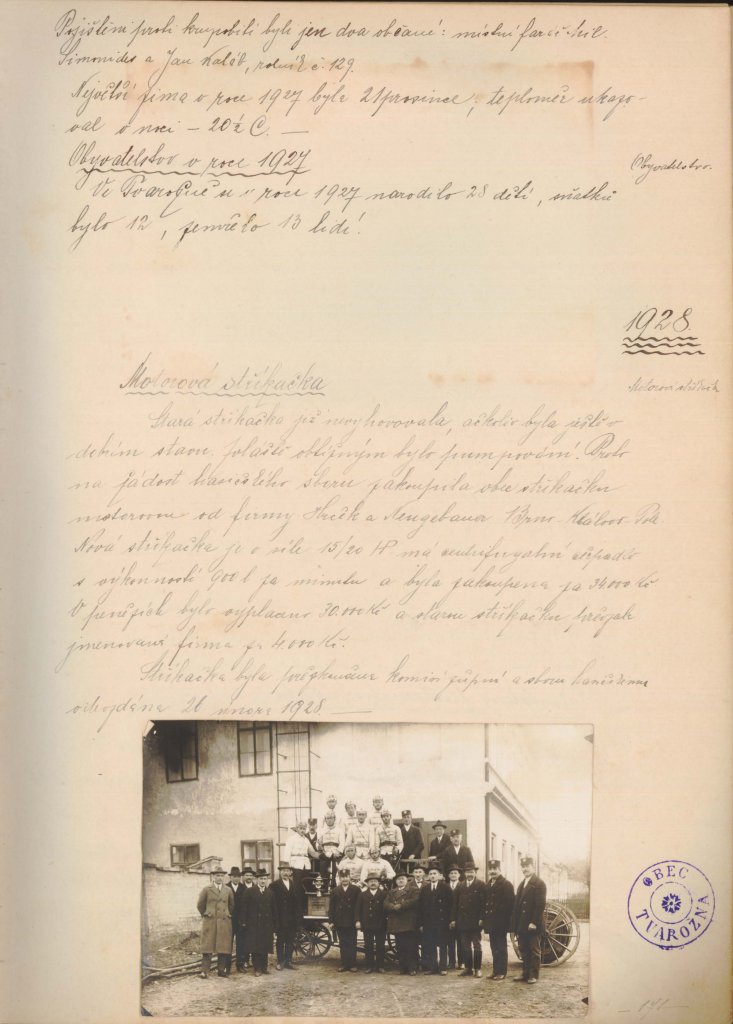 Pojištěni proti krupobití byli jen dva občané: místní farář Mil.
Simonides a Jan Kaláb, rolník č. 129.
Největší zima v roce 1927 byla 21 prosince, teploměr ukazo-
val v noci – 20½ C. —
Obyvatelstvo v roce 1927
Obyvatelstvo.
Ve Tvarožné se v roce 1927 narodilo 28 dětí, sňatků
bylo 12, zemřelo 13 lidí.
1928.
Motorová stříkačka
Motorová stříkačka
Stará stříkačka již nevyhovovala, ačkoliv byla ještě v
dobrém stavu, zvláště obtížným bylo pumpování. Proto
na žádost hasičského sboru zakoupila obec stříkačku
motorovou od firmy a Neugebauer Brno Královo Pole
Nová stříkačka je o síle 15/20 HP má centrifugalní čerpadlo
s výkonností 900 l za minutu a byla zakoupena za 34.000 Kč
V penězích bylo vyplaceno 30.000 Kč a starou stříkačku převzala
jmenovaná firma za 4.000 Kč.
Stříkačka byla přezkoušena komisí župní a sboru hasičskému
odevzdána 26 února 1928. —
OBEC
TVAROŽNÁ
– 171 –